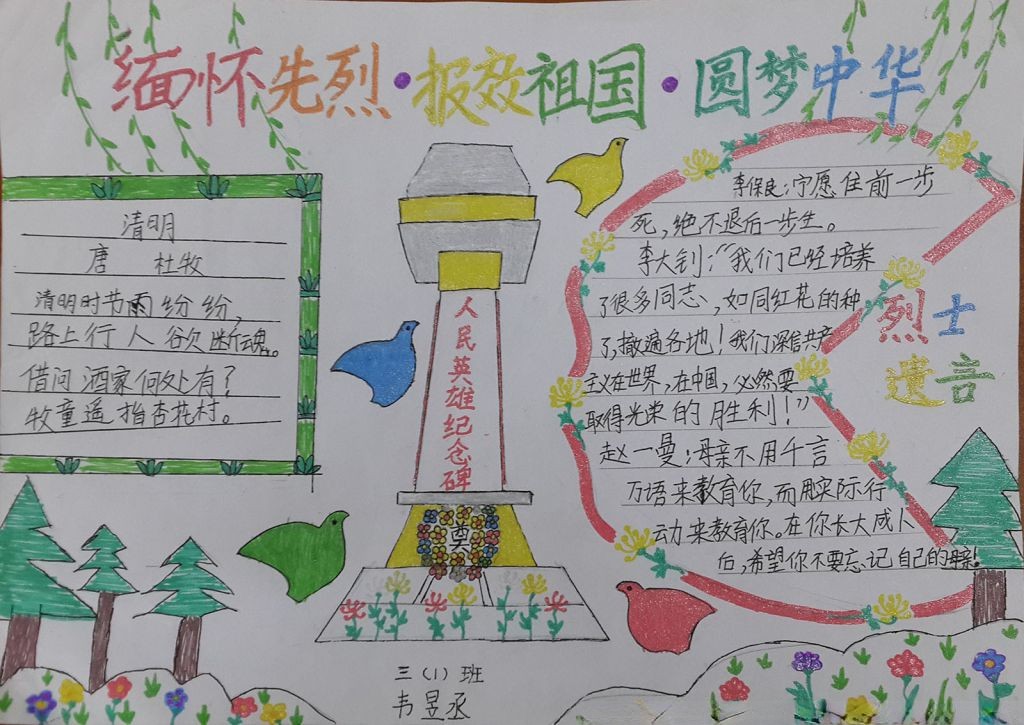 缅怀先烈·报效祖国·圆梦中华
清明
唐 杜牧
清明时节雨纷纷,
路上行人欲断魂。
借问酒家何处有?
牧童遥指杏花村。
人民英雄纪念碑
奠
李保良:宁愿住前一步
死,绝不退后一步生。
李大钊:“我们已经培养
了很多同志,如同红花的种
了,撒遍各地!我们深信共产
主义在世界,在中国,必然要
取得光荣的胜利!”
赵一曼:母亲不用千言
万语来教育你,而用实际行
动来教育你。在你长大成人
后,希望你不要忘记自己的母亲!
烈士
遗言
三(1)班
韦昱丞